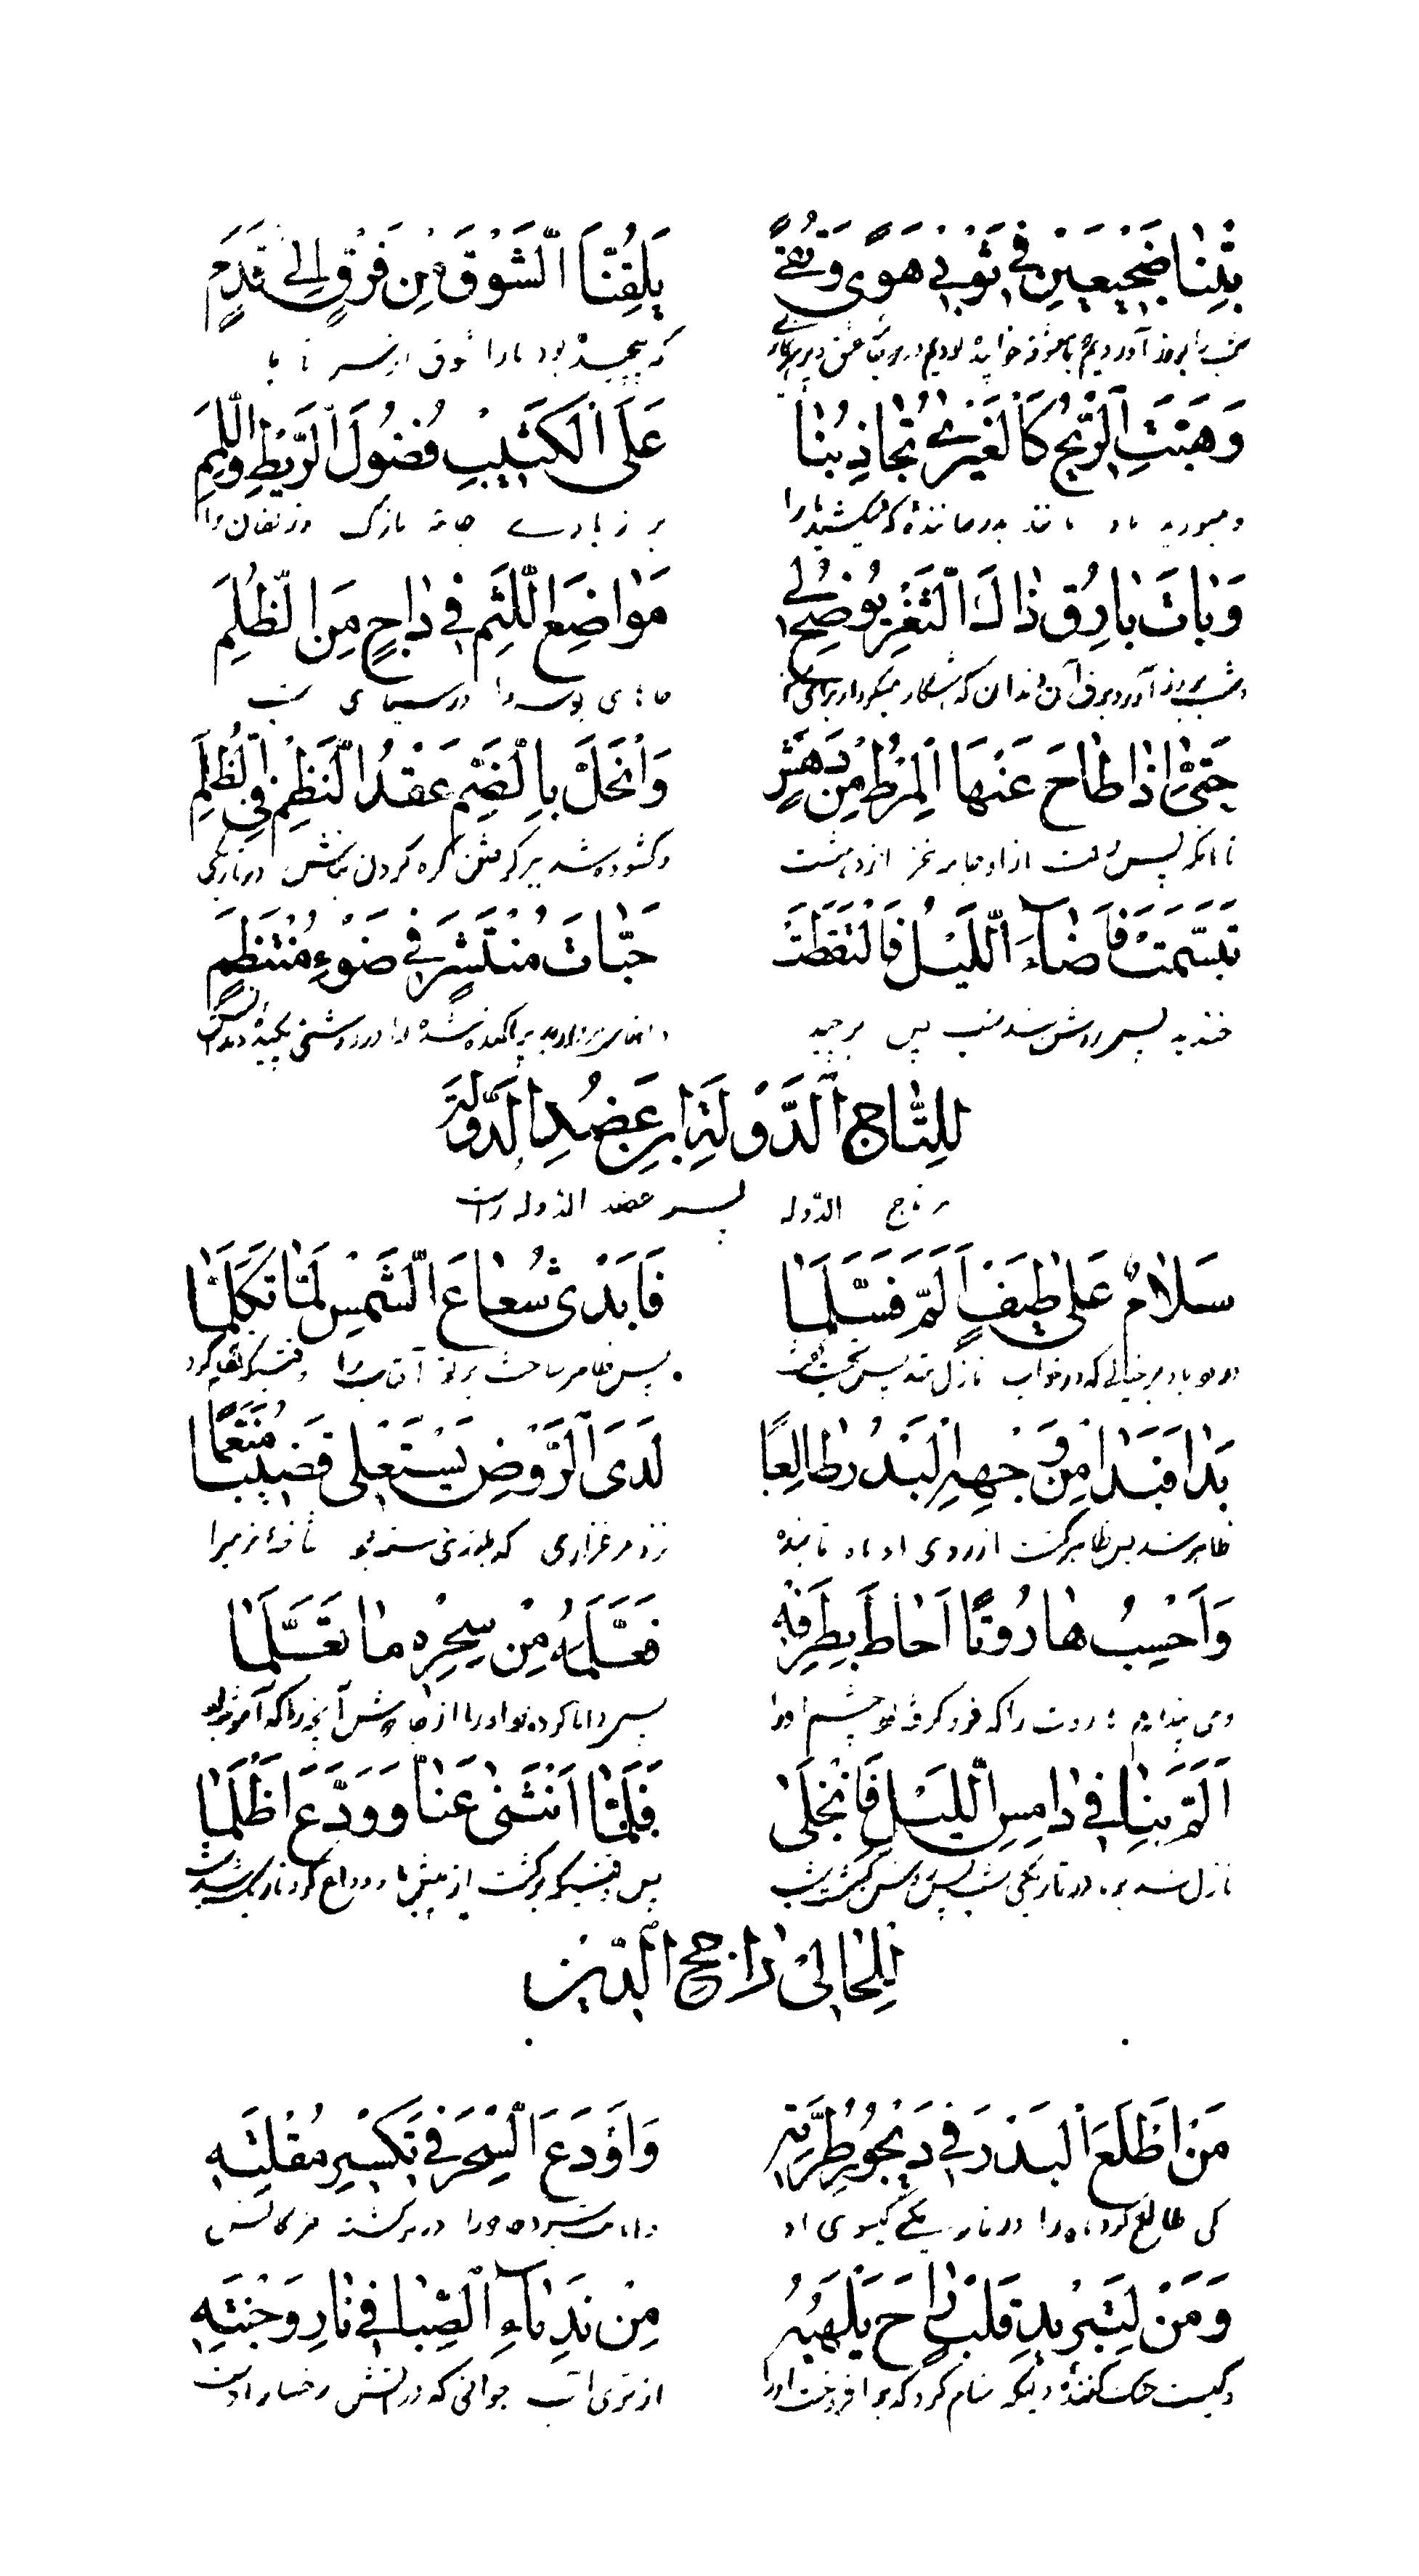 بِتْنَا ضَجِيعَيْنِ فِي ثَوْبَيْ هَوًى وَتُقًى يَلُفُّنَا الشَّوْقُ مِنْ فَرْقٍ إِلَى قَدَمِ
شب را بروز آوردیم با معشوقه خوابیده بودیم در دو عشق و پرهیزکاری که پیچیده بود ما را شوق از سر تا پا
وَهَبَّتِ الرِّيحُ كَالْغَيْرَى تُجَاذِبُنَا عَلَى الْكَثِيبِ فُضُولَ الرَّيْطِ وَاللِّمَمِ
باد مانند که میکشید ما را بر زیادے جامه نازک و زلفان را
وَبَاتَ بَارِقُ ذَاكَ الثَّغْرِ يُوضِحُ لِي مَوَاضِعَ اللَّثْمِ فِي دَاجٍ مِنَ الظُّلَمِ
و شب بروز آورد برق آن دندان که آشکار میکرد از برای من جاهای بوسه را در سیاهی شب
حَتَّى إِذَا طَاحَ عَنْهَا الْمِرْطُ مِنْ دَهَشٍ وَانْحَلَّ بِالضَّمِّ عَقْدُ النَّظْمِ فِي الظُّلَمِ
تا آنکه پس رفت از او جامه خز از دهشت و گشوده شد گره کردن در تاریکی
تَبَسَّمَتْ فَأَضَاءَ اللَّيْلُ فَالْتَقَطَتْ حَبَّاتَ مُنْتَثِرٍ فِي ضَوْءِ مُنْتَظِمٍ
خندید پس روشن شد شب پس برچید پراکنده شده را در روشنی
لِلتَّاجِ الدَّوْلَةِ ابْنِ عَضُدِ الدَّوْلَةِ
مر تاج الدّوله پسر عضد الدّوله راست
سَلَامٌ عَلَى طَيْفٍ أَلَمَّ فَسَلَّمَا فَأَبْدَى شُعَاعَ الشَّمْسِ لَمَّا تَكَلَّمَا
درود باد بر خیالی که در خواب نازل شد پس پس ظاهر ساخت پرتو آفتاب را وقتیکه تکلم کرد
بَدَا فَبَدَا مِنْ وَجْهِهِ الْبَدْرُ طَالِعًا لَدَى الرَّوْضِ يَسْتَعْلِي قَضِيبًا مُنَعَّمًا
ظاهر شد پس ظاهر گشت از روی او ماه تابنده نزد مرغزاری که
وَأَحْسِبُ هَارُوتًا أَحَاطَ بِطَرْفِهِ فَعَلَّمَهُ مِنْ سِحْرِهِ مَا تَعَلَّمَا
و می پندارم هاروت را که فرو گرفته بود چشم او را پس دانا کرده بود او را از جادویش آنچه را که آموخته بود
أَلَمَّ بِنَا فِي دَامِسِ اللَّيْلِ فَانْجَلَى فَلَمَّا انْثَنَى عَنَّا وَوَدَّعَ أَظْلَمَا
نازل شد بر ما در تاریکی شب پس روشن گشت شب پس وقتیکه برگشت از پیش ما و وداع کرد تاریک شد
لِلْحَالِيّ رَاجِحِ الدِّينِ
مَنْ أَطْلَعَ الْبَدْرَ فِي دَيْجُورِ طُرَّتِهِ وَأَوْدَعَ السِّحْرَ فِي تَكْسِيرِ مُقْلَتِهِ
کی طالع کرد ماه را در تاریکے گیسوی او جادو را در برگشته مژگانش
وَمَنْ لِتَبْرِيدِ قَلْبٍ رَاحَ يُلْهِبُهُ مِنْ نَدِّ مَاءِ الصِّبَا فِي نَارِ وَجْنَتِهِ
و کیست خنک کننده دلیکه شام کرد که بر افروخت او را از تری آب جوانی که در آتش رخسار اوست